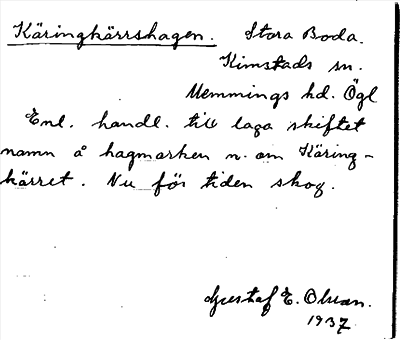 Käringkärrshagen. Stora Boda.
Kimstads sn.
Memmings hd. Ögl
Enl. handl. till laga skiftet
namn å hagmarken n. om Käring-
kärret. Nu för tiden skog.
Gustaf E. Olsson.
1937